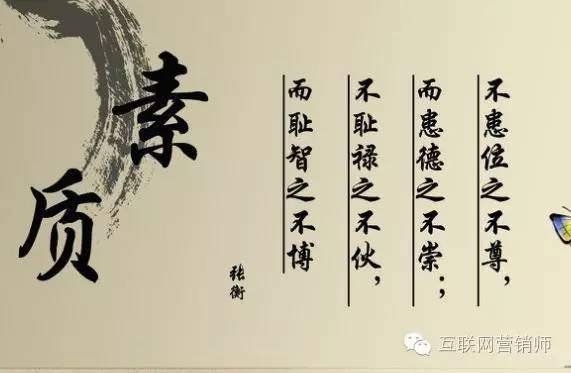 素质
不患位之不尊，
而患德之不崇；
不耻禄之不伙，
而耻智之不博
张衡
互联网营销师